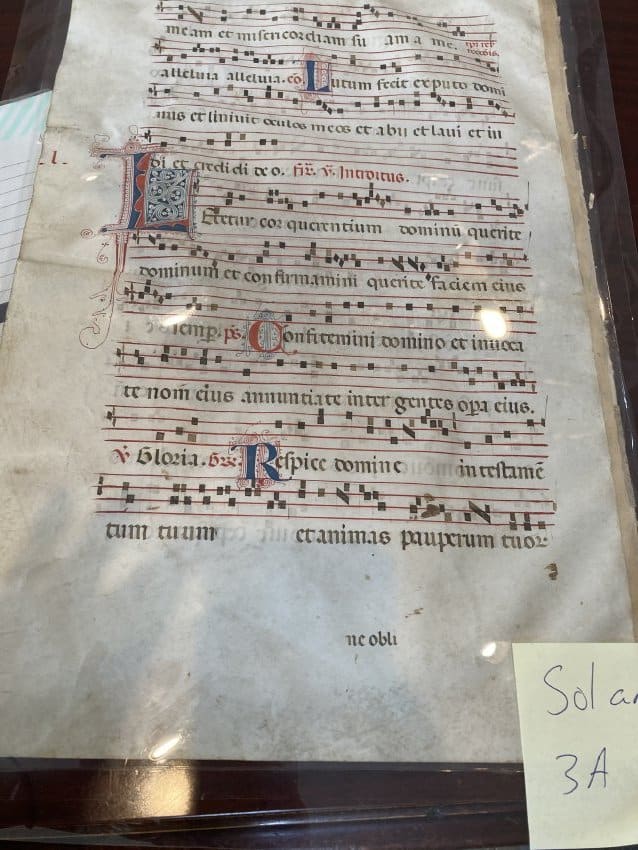 meam et misericordiam su am a me.
alleluia alleluia. co. Lutum fecit exputo domi
nus et linivit oculos meos et abii et lavi et vi
di et credi di de o. fr. v. Introitus.
l.
LEtetur cor querentium dominū querite
dominum et confirmamini querite faciem eius
semp. ps. Confitemini domino et invoca
te nom̄ eius annuntiate inter gentes opa eius.
v Gloria. Respice domine in testamē
tum tuum et animas pauperum tuor
ne obli
Sol
3A